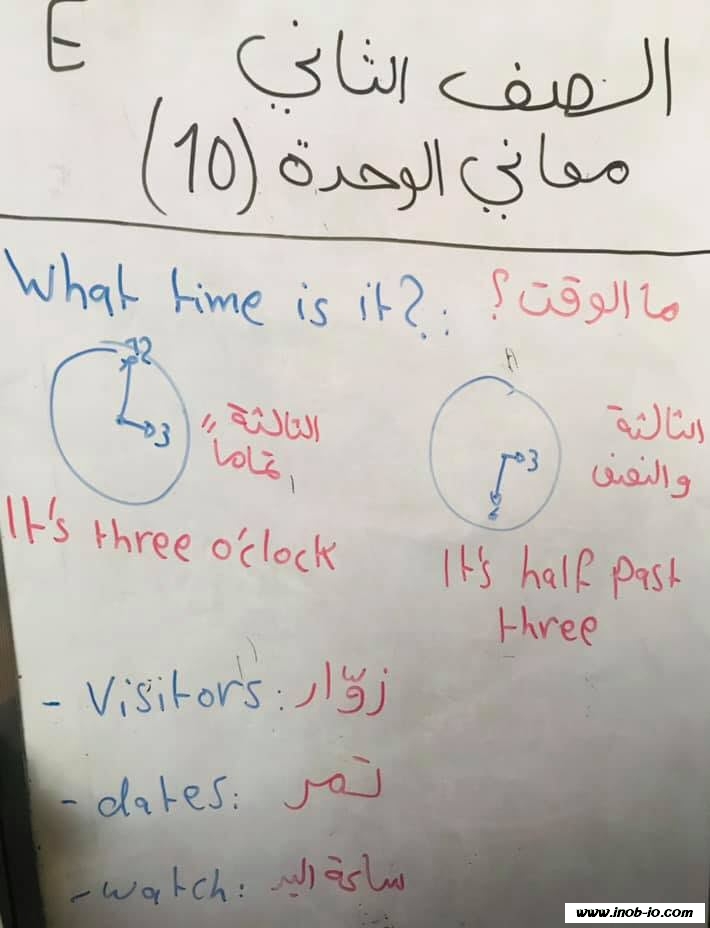 E
الصف الثاني
معاني الوحدة (10)
What time is it?: ما الوقت؟
12
3
الثالثة
تماما
It's three o'clock
3
6
الثالثة
والنصف
It's half past
three
- Visitors: زوّار
- dates: تمر
- watch: ساعة اليد
www.inob-io.com